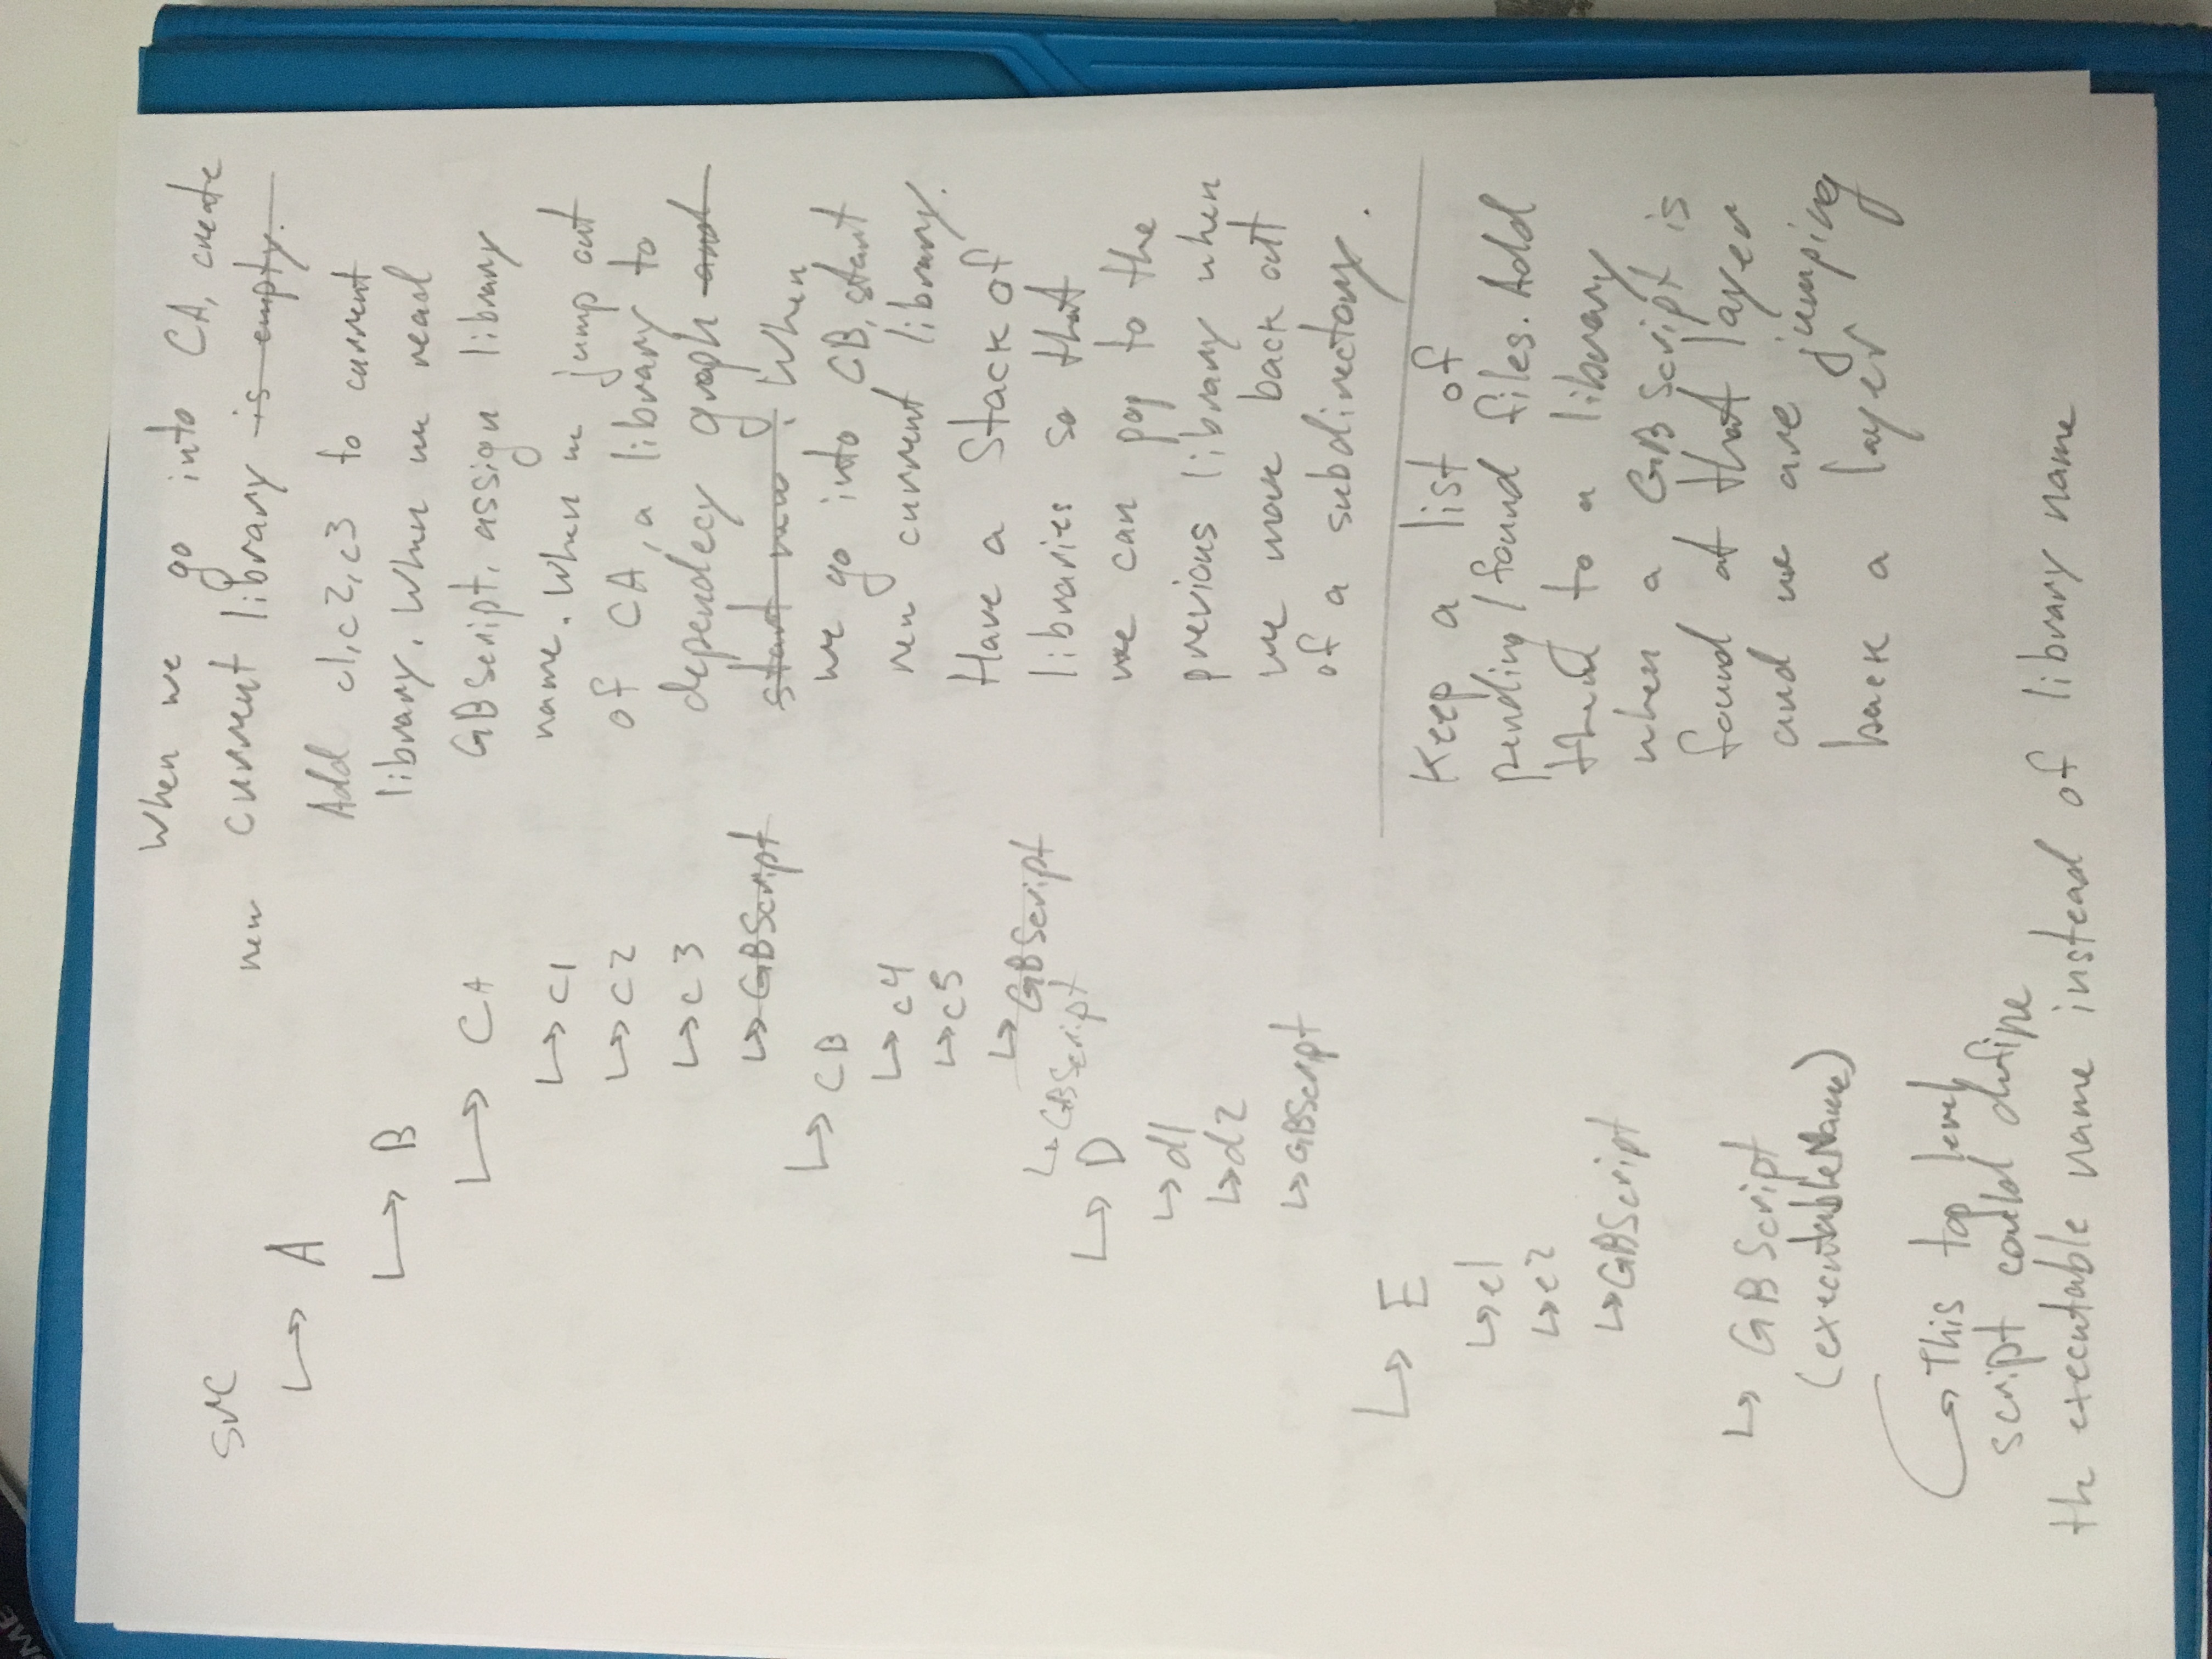 OME
src
↳ A
↳ B
↳ CA
↳ c1
↳ c2
↳ c3
↳ GBScript
↳ CB
↳ c4
↳ c5
↳ GBScript
↳ GBScript
↳ D
↳ d1
↳ d2
↳ GBScript
↳ E
↳ e1
↳ e2
↳ GBScript
↳ GBScript
(executableName)
This top level
script could define
the executable name instead of library name
When we go into CA, create
new current library is empty.
Add c1, c2, c3 to current
library. When we read
GBScript, assign library
name. When we jump out
of CA, a library to
dependecy graph and
start new. When
we go into CB, start
new current library.
Have a Stack of
libraries so that
we can pop to the
previous library when
we move back out
of a subdirectory.
Keep a list of
pending/found files. Add
them to a library
when a GBScript is
found at that layer
and we are jumping
back a layer